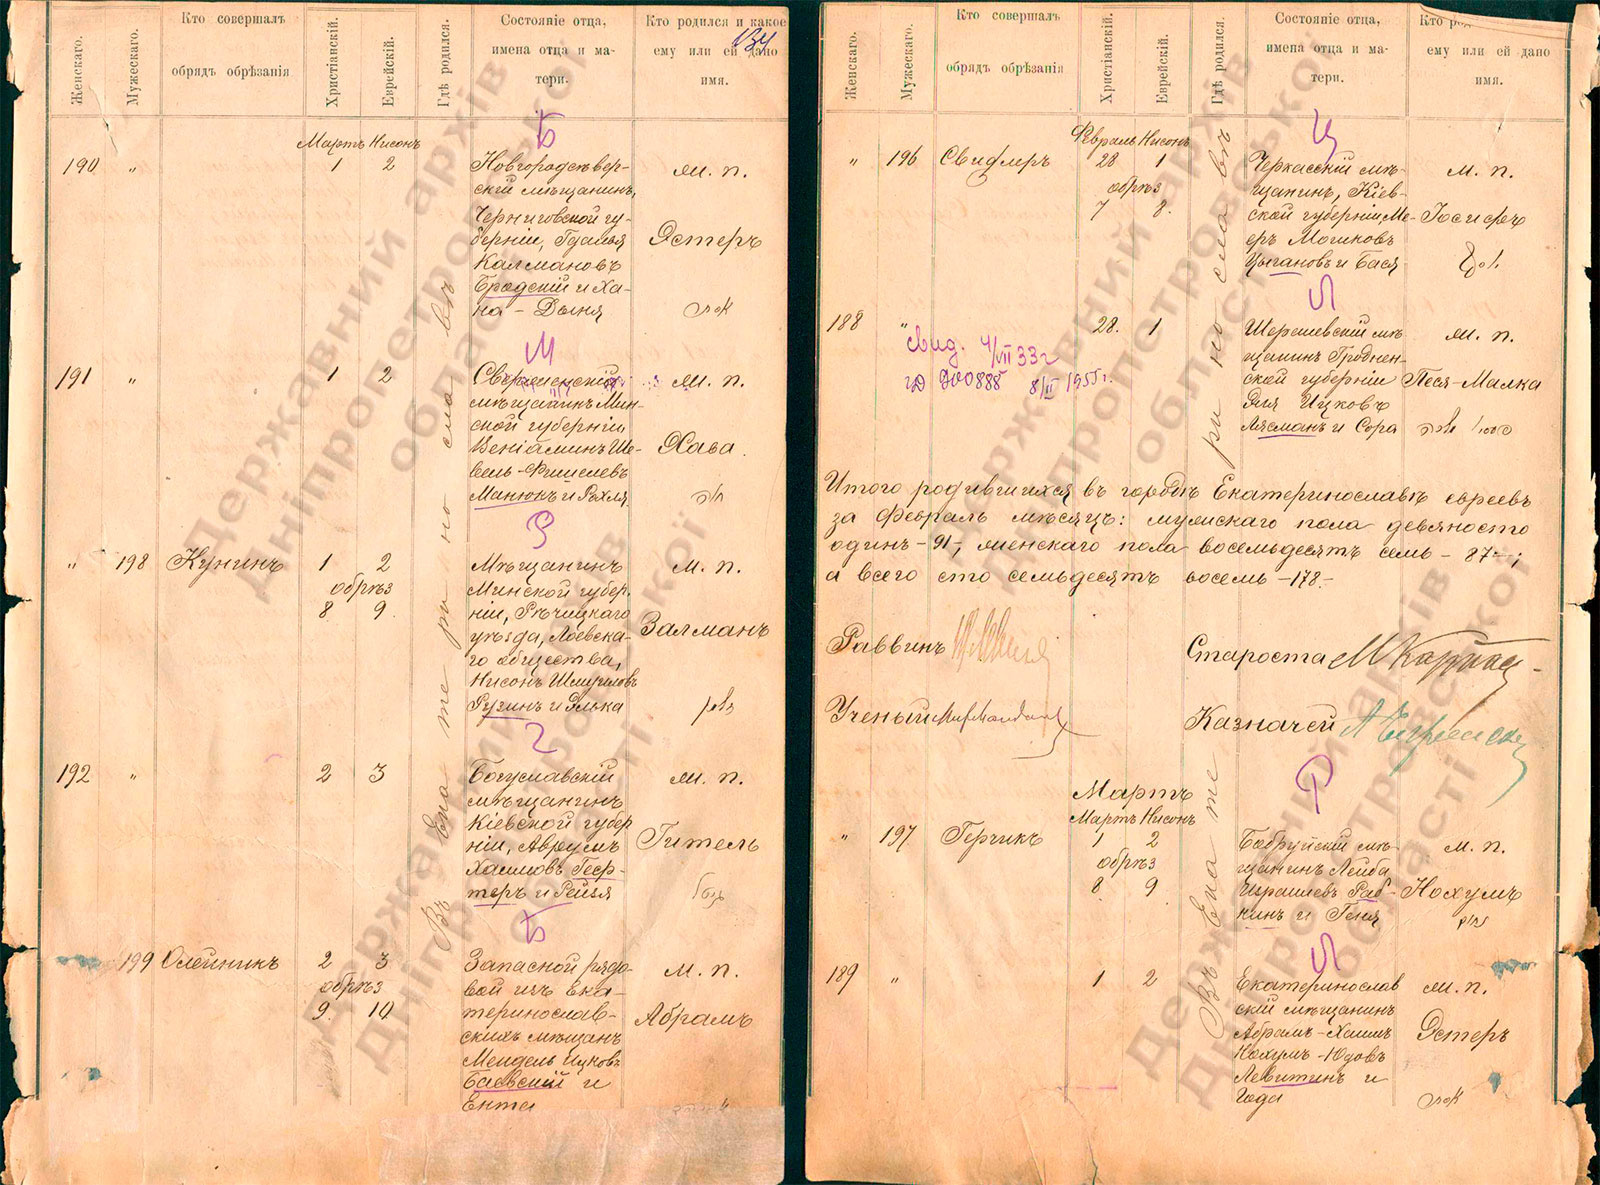 Женскаго.
Мужескаго.
Кто совершалъ
обрядъ обрѣзанія
Христіанскій.
Еврейскій.
Гдѣ родился.
Состояніе отца,
имена отца и ма-
тери.
Кто родился и какое
ему или ей дано
имя.
134
Въ Екатеринославѣ
Мартъ Нисонъ
190 „ 1 2
Новгородсѣвер-
скій мѣщанинъ,
Черниговской гу-
берніи, Гдалья
Калмановъ
Бродскій и Ха-
на - Дыня
м. п.
Эстеръ
191 „ 1 2
мѣщанинъ Мин-
ской губерніи
Веніаминъ Ше-
вель-Фишелевъ
Манюкъ и Рохля
м. п.
Хава.
„ 198 Кунинъ 1 2
обрѣз
8 9
Мѣщанинъ
Минской губер-
ніи, Рѣчицкаго
уѣзда, Лоевска-
го общества,
Нисонъ Шмуиловъ
Рузинъ и Элька
м. п.
Залманъ
192 „ 2 3
Богуславскій
мѣщанинъ
Кіевской губер
ніи, Аврумъ
Хаимовъ Геф-
теръ и Рейзя
м. п.
Гитель
199 Олейникъ 2 3
обрѣз
9 10
Запасной рядо-
вой изъ ека-
теринослав-
скихъ мѣщанъ
Мендель Ицковъ
Баевскій и
Ента
м. п.
Абрамъ
Женскаго.
Мужескаго.
Кто совершалъ
обрядъ обрѣзанія
Христіанскій.
Еврейскій.
Гдѣ родился.
Состояніе отца,
имена отца и ма-
тери.
Кто
ему или ей дано
имя.
Февраль Нисонъ
„ 196 Свидлеръ 28 1
обрѣз
7 8.
Черкасскій мѣ-
щанинъ, Кіев-
ской губерніи Ме-
еръ Мошковъ
Цыгановъ и Бася
м. п.
Іосифъ
188 „ 28. 1
свид. 4/VII 33 г
8/II 1955 г.
Шерешевскій мѣ
щанинъ Гроднен-
ской губерніи
Эля Ицковъ
Лясманъ и Сора
м. п.
Песя-Малка
Итого родившихся въ городѣ Екатеринославѣ евреевъ
за Февраль мѣсяцъ: мужскаго пола девяносто
одинъ - 91 -, женскаго пола восемьдесятъ семь - 87 - ;
а всего сто семьдесятъ восемь - 178 -
Раввинъ
Староста
Ученый
Казначей
Мартъ
Мартъ Нисонъ
„ 197 Герчикъ 1 2
обрѣз
8 9
Бобруйскій мѣ-
щанинъ Лейба
Израилевъ Раб-
кинъ и Геня
м. п.
Нохумъ
189 „ 1 2
Екатеринослав
скій мѣщанинъ
Абрамъ-Хаимъ
Нохумъ-Юдовъ
Левитинъ и
Года
м. п.
Эстеръ
Державний архів
Дніпропетровської
області